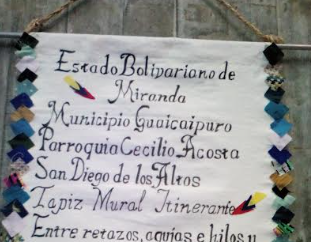 Estado Bolivariano de
Miranda
Municipio Guaicaipuro
Parroquia Cecilio Acosta
San Diego de los Altos
Tapiz Mural Itinerante
Entre retazos, agujas e hilos y